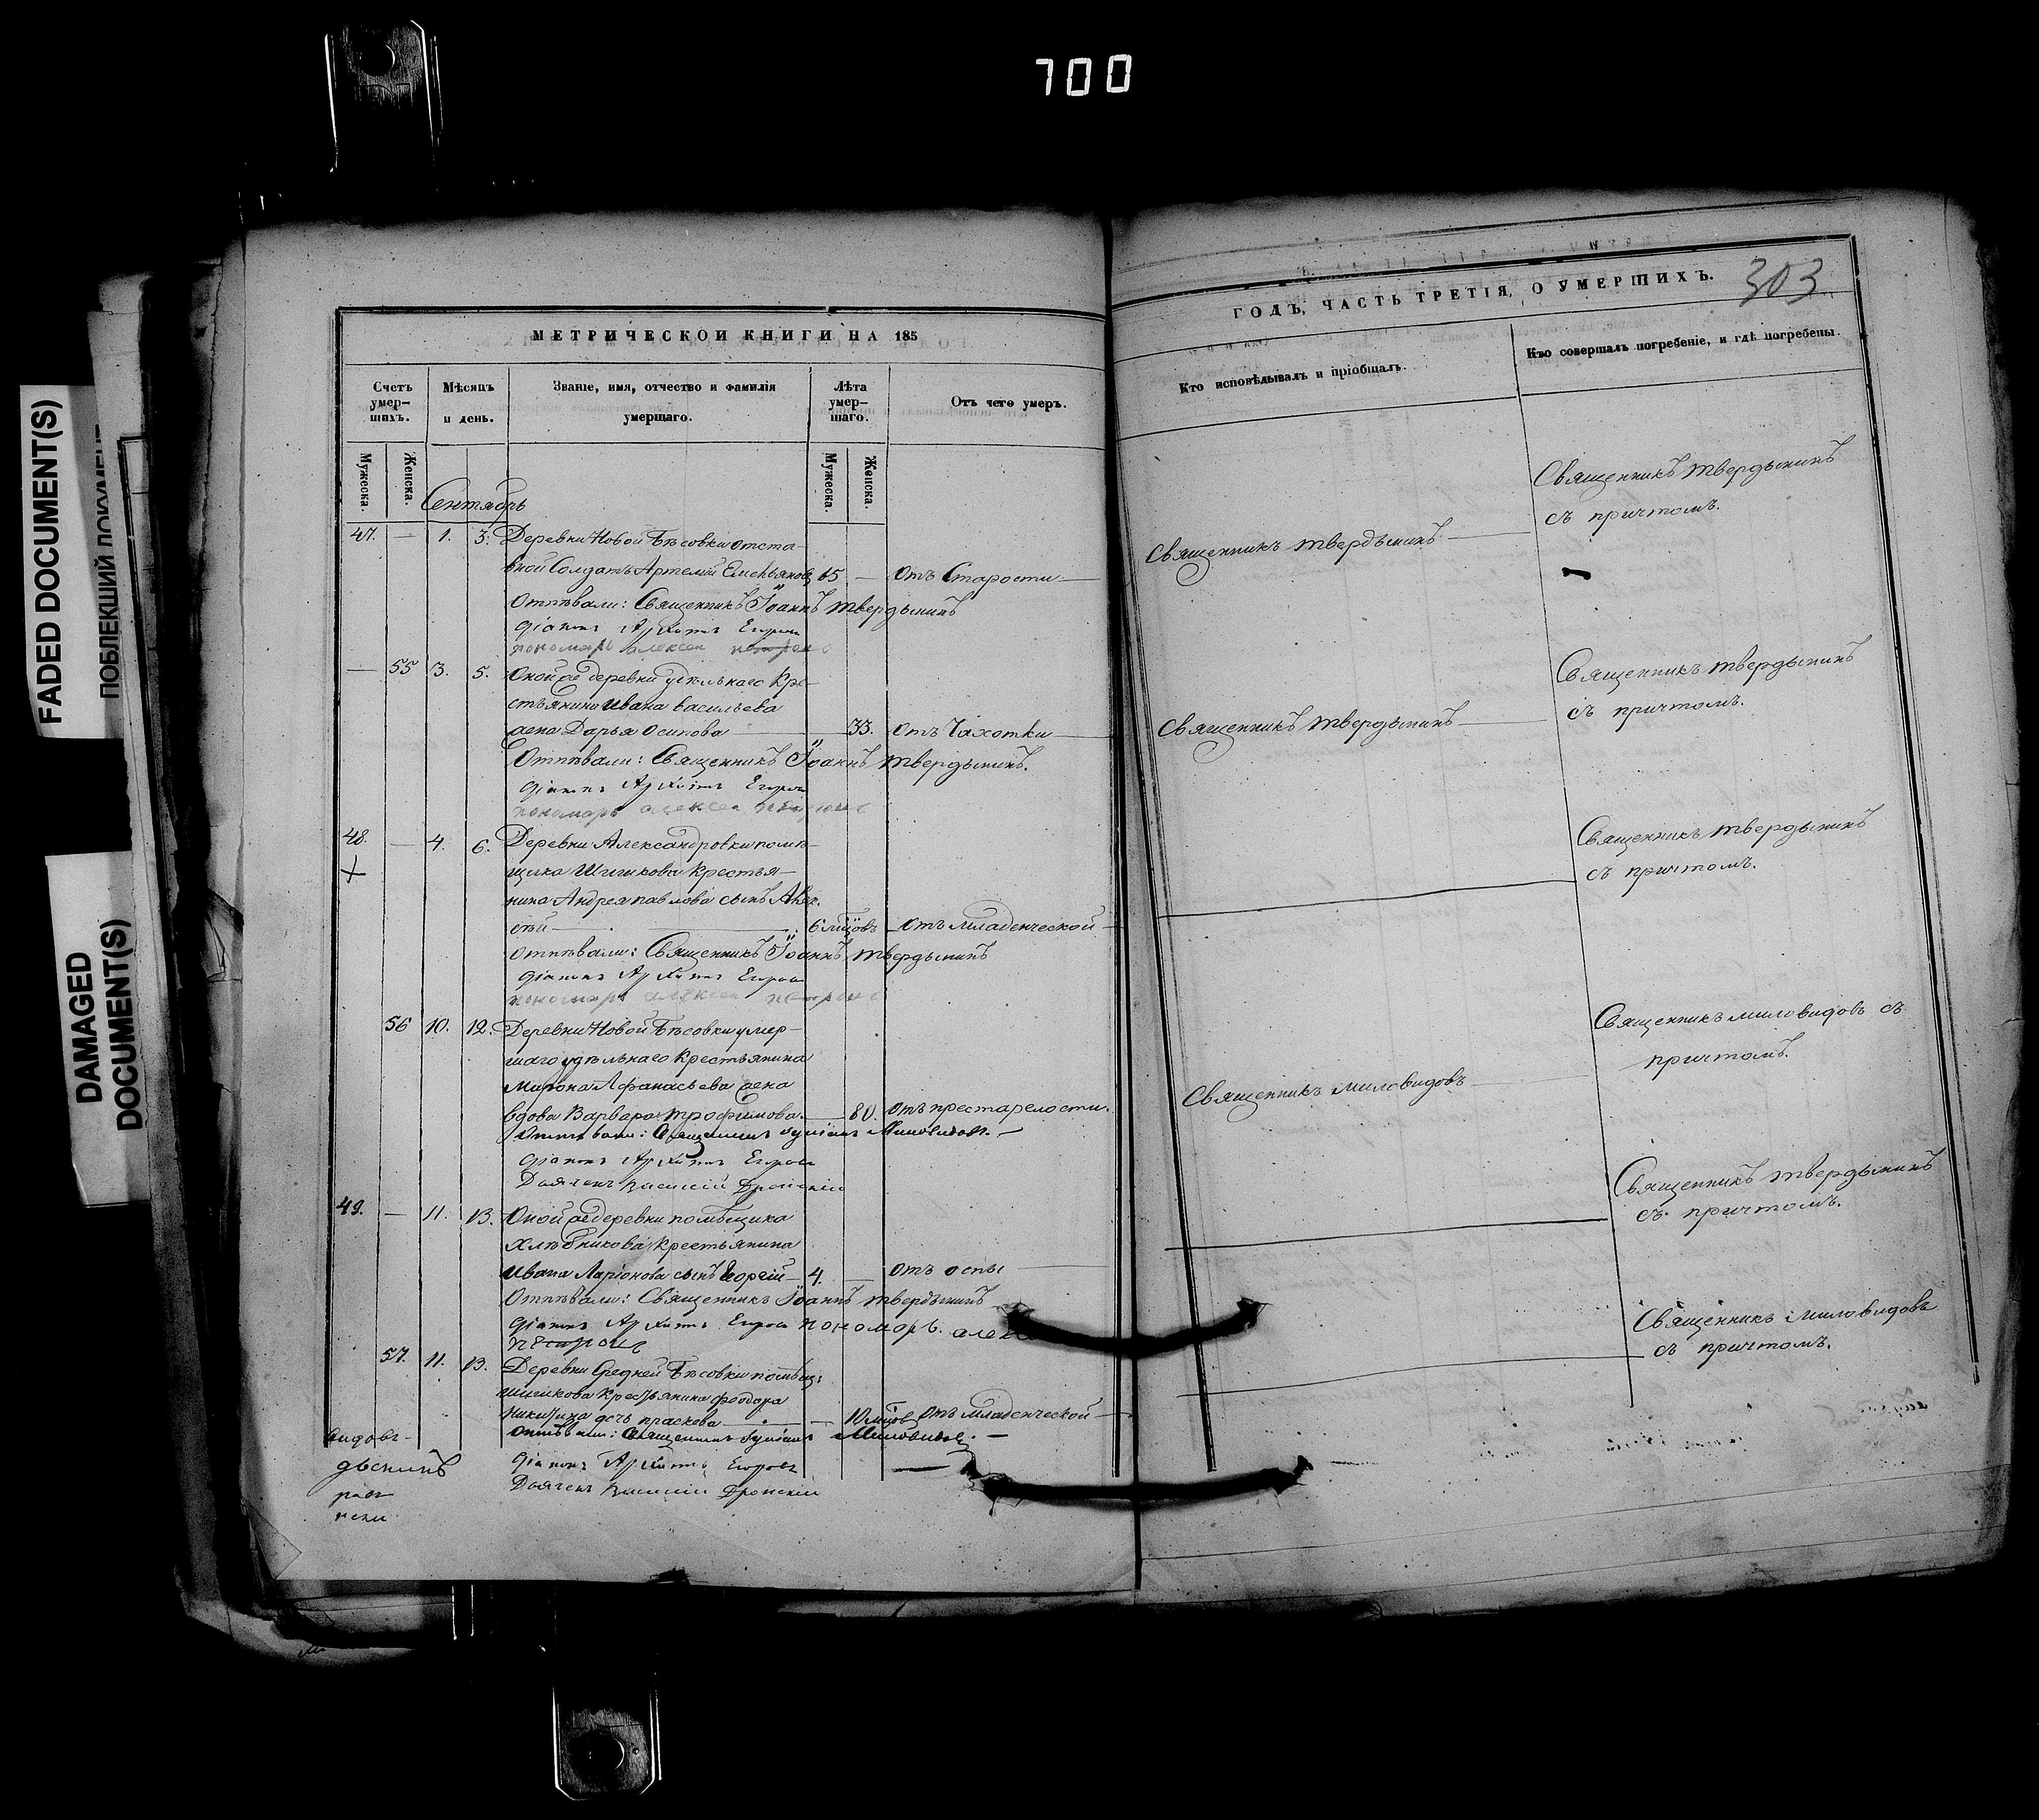 700
FADED DOCUMENT(S)
ПОБЛЕКШИЙ ДОКУМЕНТ
DAMAGED
DOCUMENT(S)
МЕТРИЧЕСКОЙ КНИГИ НА 185
Счетъ умер-шихъ.
Мѣсяцъ и день.
Званіе, имя, отчество и фамилія умершаго.
Лѣта умер-шаго.
Отъ чего умеръ.
Мужеска.
Женска.
Мужеска.
Женска.
Сентябрь
47. — 1. 3. Деревни Новой Бѣсовки отста-
вной Солдатъ Артемій Емельяновъ 65 — отъ Старости
Отпѣвали: Священникъ Іоаннъ Твердынинъ
Діаконъ Архипъ Егоровъ
пономарь алексей петровъ
— 55 3. 5. Оной же деревни удѣльнаго Кре-
стьянина Ивана Васильева
жена Дарья Осипова 33. отъ Чахотки
Отпѣвали: Священникъ Іоаннъ Твердынинъ.
Діаконъ Архипъ Егоровъ
пономарь алексей петровъ
48. — 4. 6. Деревни Александровки помѣ-
щика Шишкова Крестья-
нина Андрея павлова сынъ Алек.
сѣй 6 мцовъ отъ младенческой
отпѣвали: Священникъ Іоаннъ Твердынинъ
Діаконъ Архипъ Егоровъ
пономарь алексей петровъ
56 10. 12. Деревни Новой Бѣсовки умер-
шаго удѣльнаго Крестьянина
Мирона Афанасьева жена
вдова Варвара трофимова. 80. отъ престарелости.
Отпѣвали: Священникъ Миловидовъ.
Діаконъ Архипъ Егоровъ
Дьячекъ Василій
49. — 11. 13. Оной же деревни помѣщика
Хлѣбникова Крестьянина
Ивана Ларіонова сынъ Георгій 4. — отъ оспы
Отпѣвали: Священникъ Іоаннъ Твердынинъ
Діаконъ Архипъ Егоровъ пономарь. алексей
петровъ
57. 11. 13. Деревни Средней Бѣсовки помѣщ:
Шишкова Крестьянина феодора
Никитина дочь праскева — 10 мцов отъ младенческой
Отпѣвали: Священникъ Миловидовъ.
Діаконъ Архипъ Егоровъ
Дьячекъ Василій
видовъ-
дынинъ
ГОДЪ, ЧАСТЬ ТРЕТІЯ, О УМЕРШИХЪ.
303
Кто исповѣдывалъ и пріобщалъ.
Кто совершалъ погребеніе, и гдѣ погребены.
Священникъ Твердынинъ
Священникъ Твердынинъ
съ причтомъ.
Священникъ Твердынинъ
Священникъ Твердынинъ
съ причтомъ.
Священникъ Твердынинъ
съ причтомъ.
Священникъ Миловидовъ
Священникъ Миловидовъ съ
причтомъ.
Священникъ Твердынинъ
съ причтомъ.
Священникъ Миловидовъ
съ причтомъ.